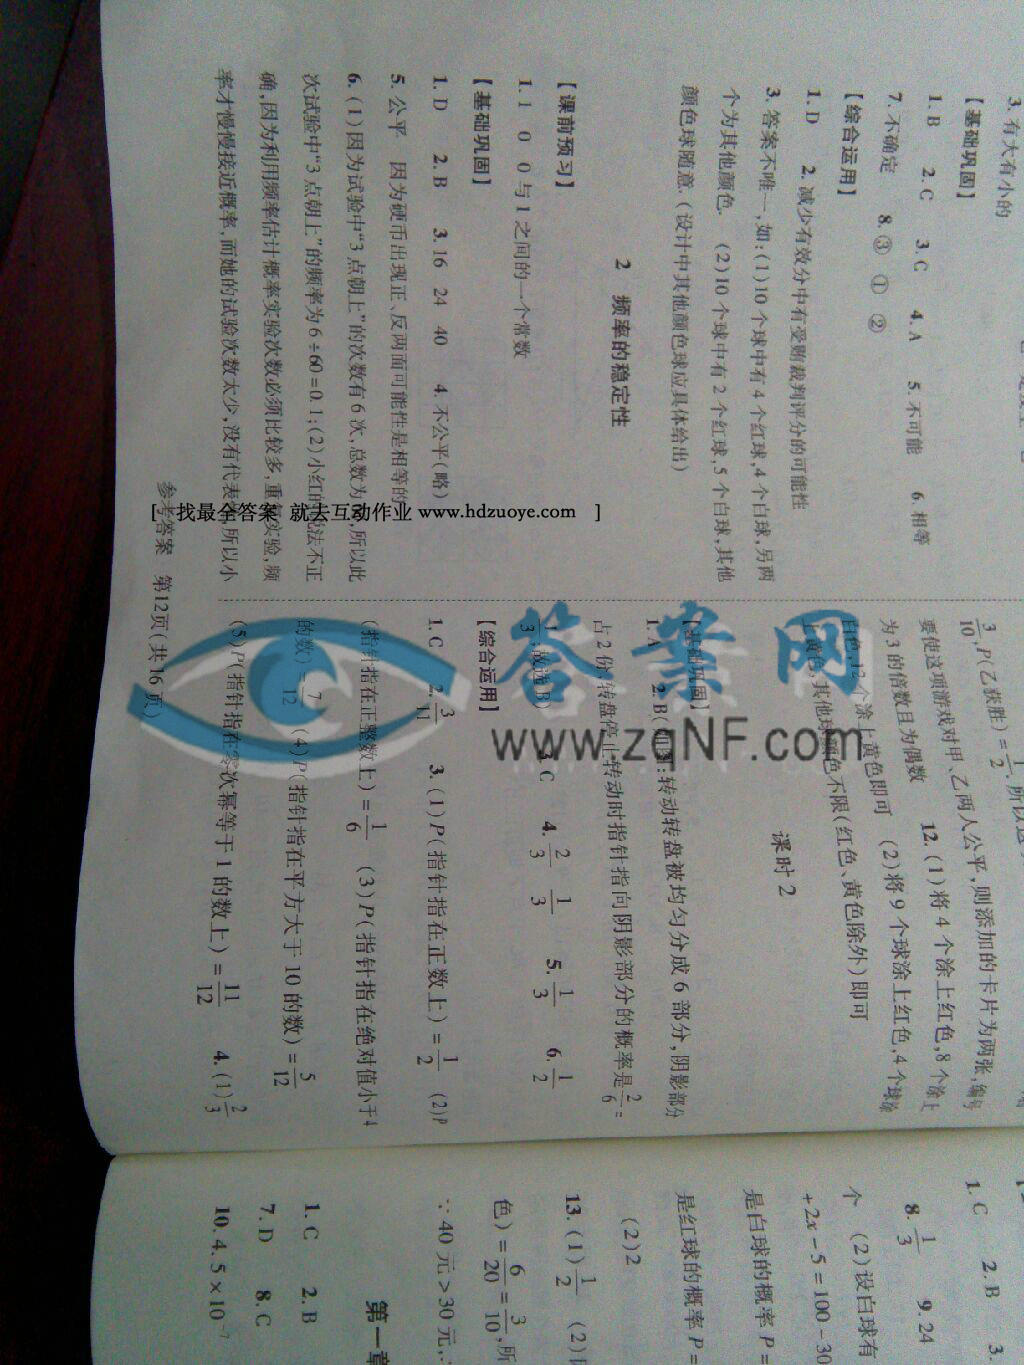 3. 有大有小的
【基础巩固】
1. B 2. C 3. C 4. A 5. 不可能 6. 相等
7. 不确定 8. ③ ① ②
【综合运用】
1. D 2. 减少有效分中有受贿裁判评分的可能性
3. 答案不唯一,如:(1)10 个球中有 4 个红球,4 个白球,另两
个为其他颜色. (2)10 个球中有 2 个红球,5 个白球,其他
颜色球随意.(设计中其他颜色球应具体给出)
2 频率的稳定性
【课前预习】
1. 1 0 0 与 1 之间的一个常数
【基础巩固】
1. D 2. B 3. 16 24 40 4. 不公平(略)
5. 公平 因为硬币出现正、反两面可能性是相等的
6. (1)因为试验中“3 点朝上”的次数有 6 次,总数为 ,所以此
次试验中“3 点朝上”的频率为 6÷60=0.1;(2)小红的 法不正
确,因为利用频率估计概率实验次数必须比较多,重 实验,频
率才慢慢接近概率,而她的试验次数太少,没有代表 ,所以小
3/10, P(乙获胜)=1/2, 所以
要使这项游戏对甲、乙两人公平,则添加的卡片为两张,编号
为 3 的倍数且为偶数 12. (1)将 4 个涂上红色,8 个涂上
白色,12 个涂上黄色即可 (2)将 9 个球涂上红色,4 个球涂
上黄色,其他球颜色不限(红色、黄色除外)即可
课时 2
【基础巩固】
1. A 2. B( :转动转盘被均匀分成 6 部分,阴影部分
占 2 份,转盘停止转动时指针指向阴影部分的概率是 2/6=
1/3,故选 B) 3. C 4. 2/3 1/3 5. 1/3 6. 1/2
【综合运用】
1. C 2. 3/11 3. (1)P(指针指在正数上)=1/2 (2)P
(指针指在正整数上)=1/6 (3)P(指针指在绝对值小于 4
的数)=7/12 (4)P(指针指在平方大于 10 的数)=5/12
(5)P(指针指在零次幂等于 1 的数上)=11/12 4. (1)2/3
参考答案 第12页(共16页)
1. C 2. B 3.
8. 1/3 9. 24
个 (2)设白球有
+2x-5=100-30
是白球的概率 P=
是红球的概率 P=
(2)2
13. (1)1/2 (2)
色)=6/20=3/10,所
∵40 元>30 元,
第一章
1. C 2. B
7. D 8. C
10. 4.5×10⁻⁷
[ 找最全答案 就去互动作业 www.hdzuoye.com ]
答案网
www.zqNF.com